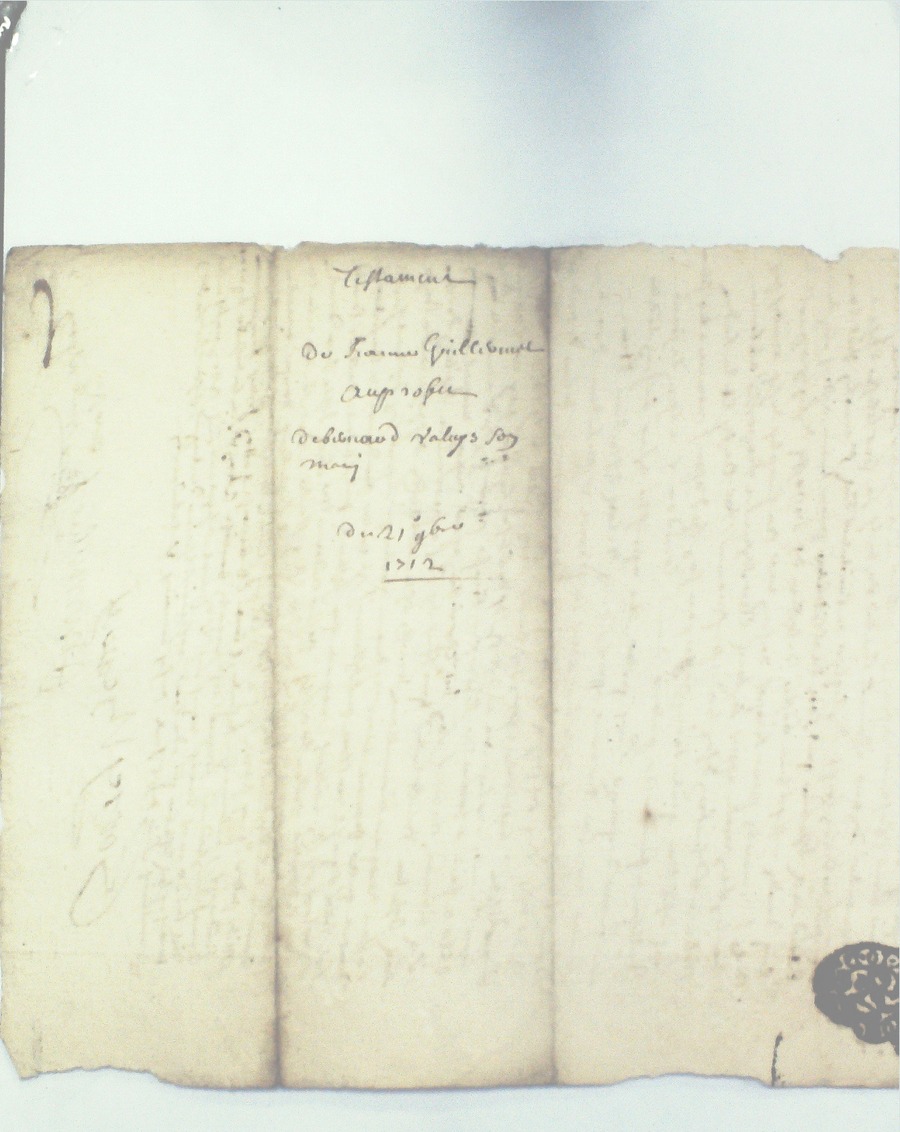 Testament
De Jeanne Guillermet
au profit
de bernard Valleys son
mary
Du 21e 9bre
1712